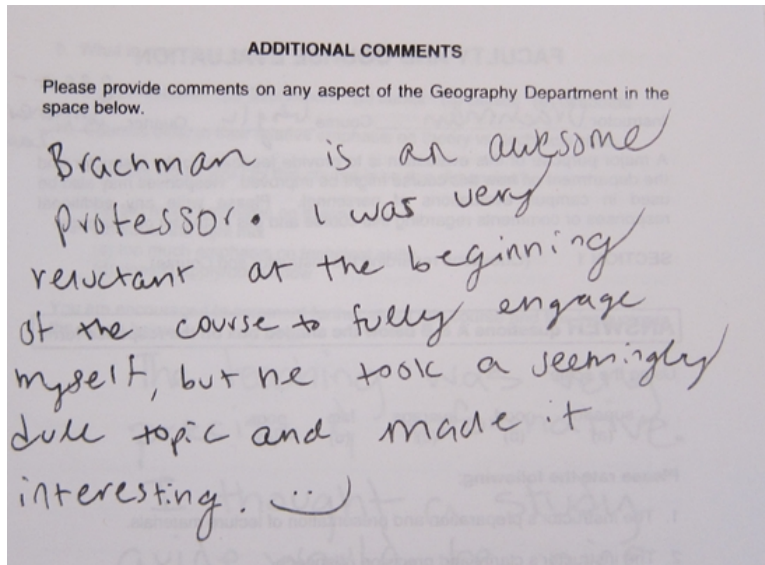 ADDITIONAL COMMENTS
Please provide comments on any aspect of the Geography Department in the
space below.
Brachman is an awesome
professor. I was very
reluctant at the beginning
of the course to fully engage
myself, but he took a seemingly
dull topic and made it
interesting. :)